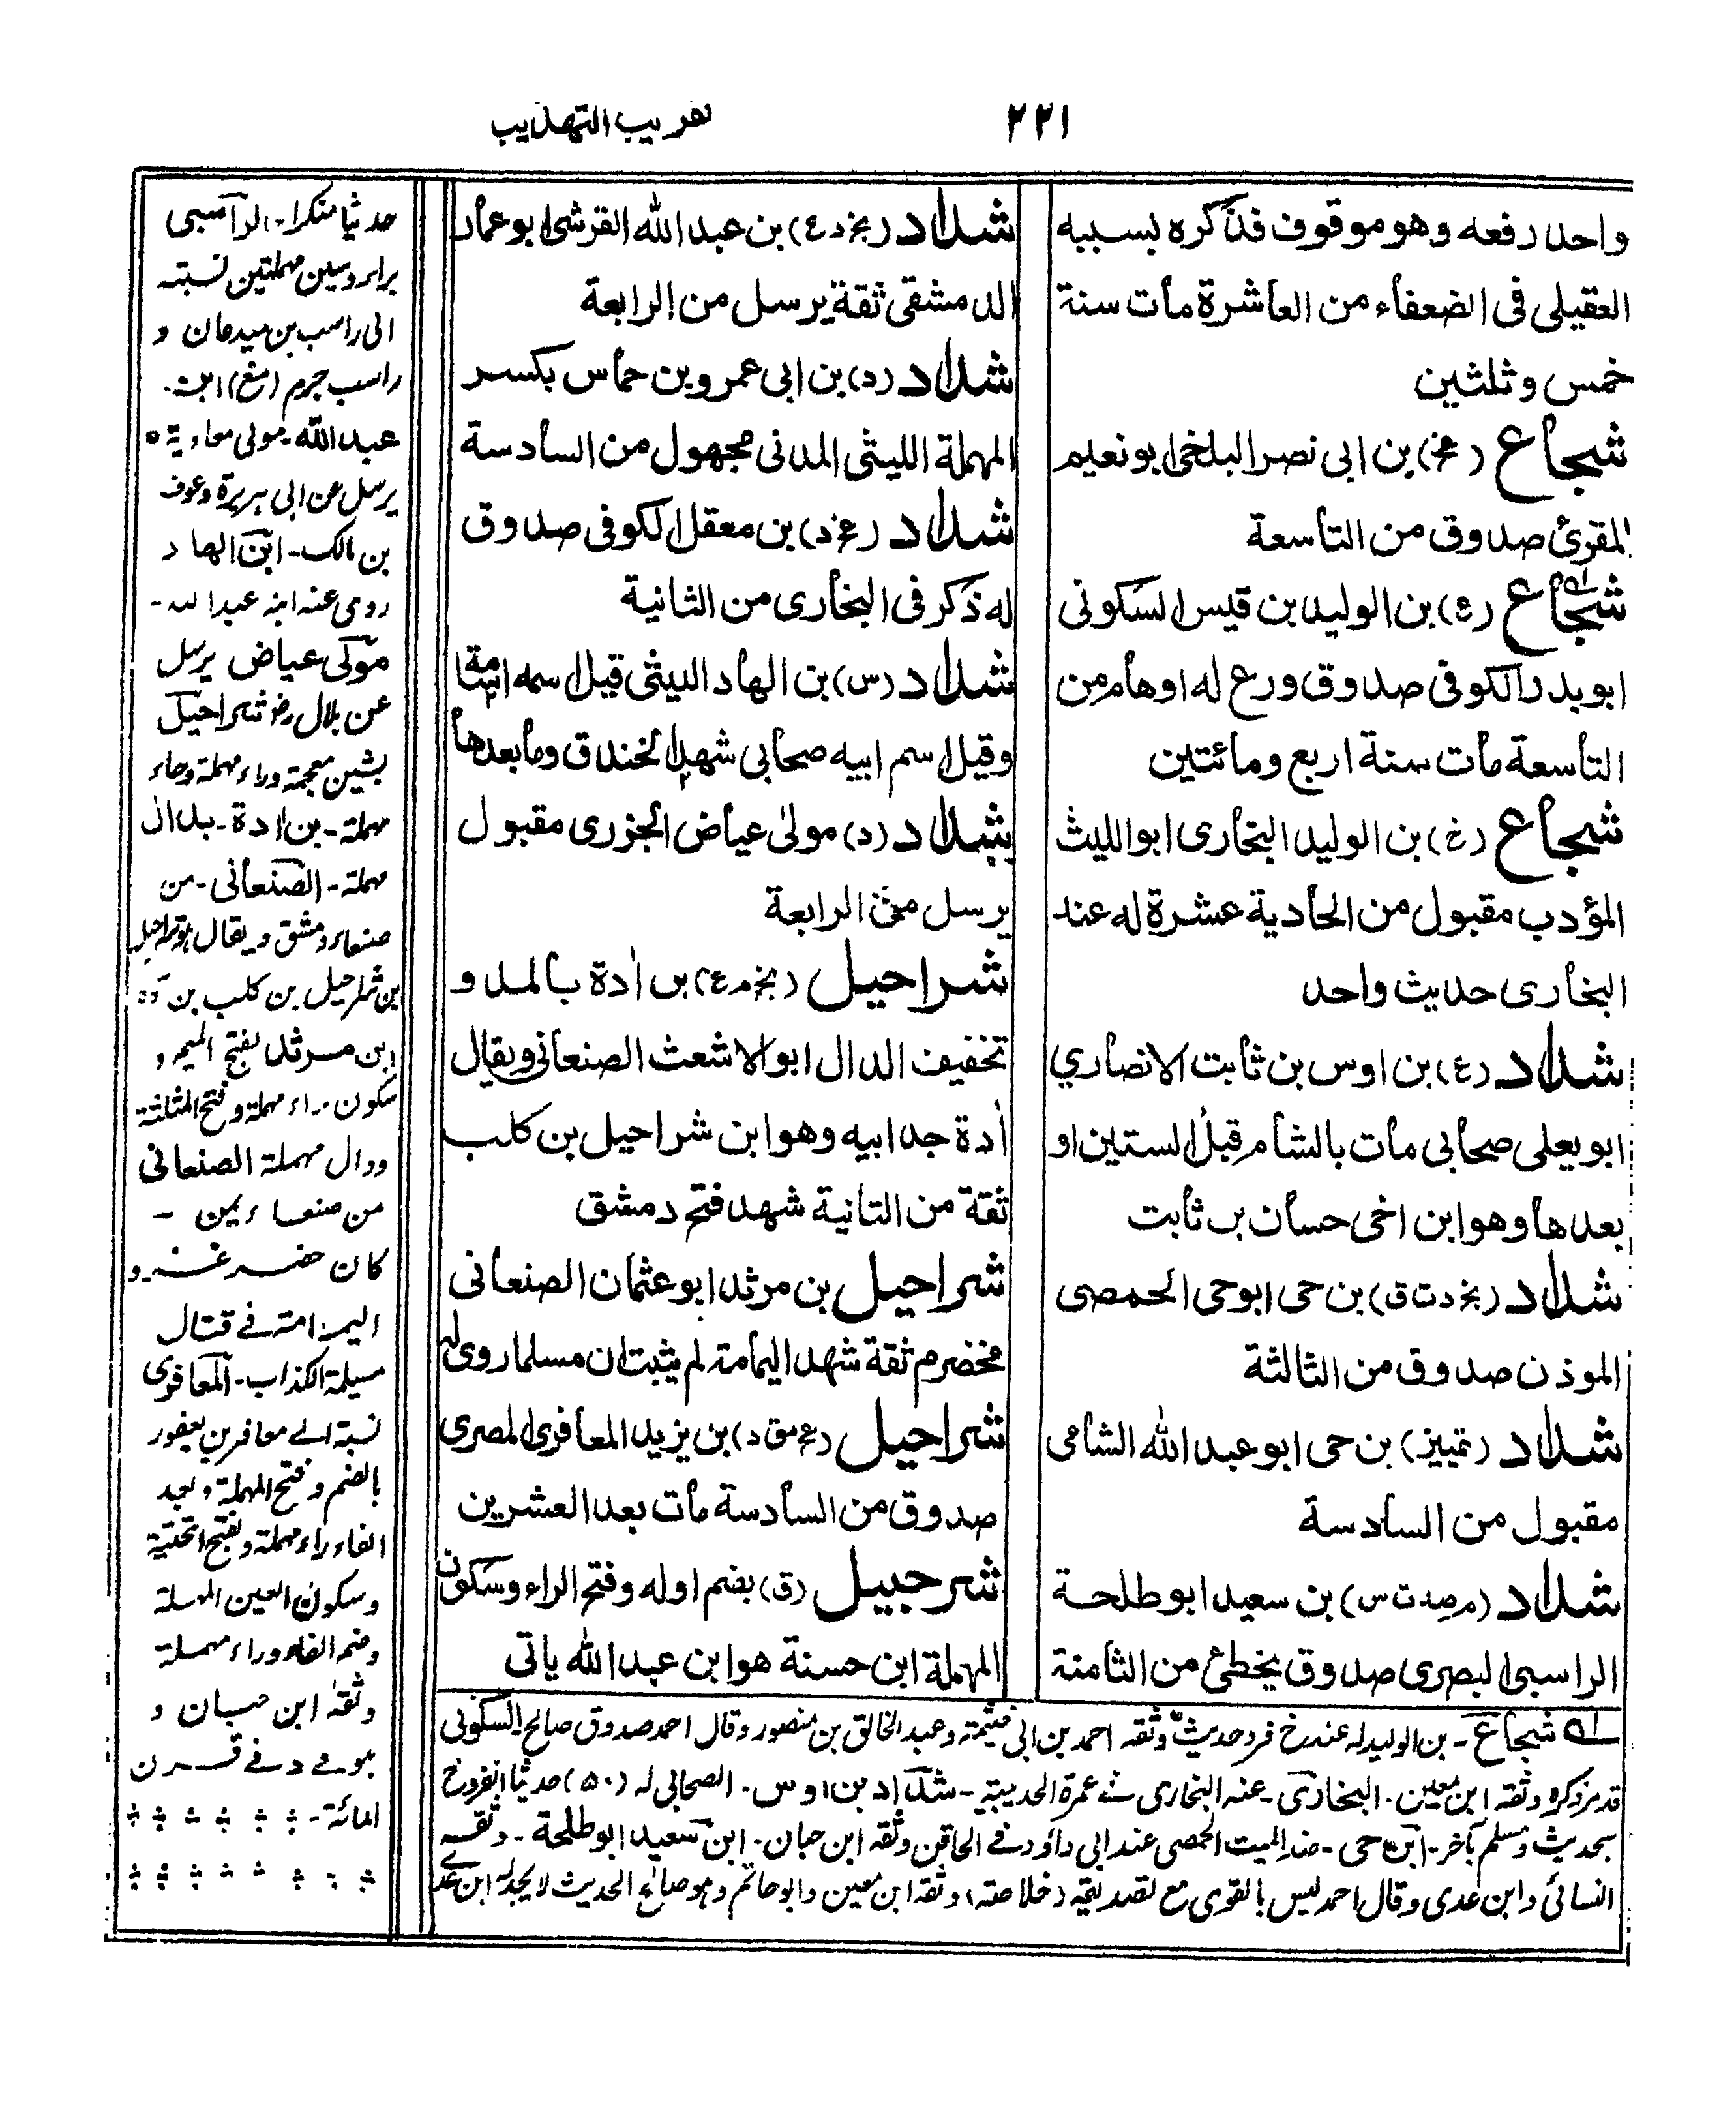 ٢٢١
تقريب التهذيب
واحد رفعه وهو موقوف فذكره بسببه
العقيلى فى الضعفاء من العاشرة مات سنة
خمس وثلثين
شجاع (عخ) بن ابى نصر البلخى ابو نعيم
المقرئ صدوق من التاسعة
شجاع (ع) بن الوليد بن قيس السكونى
ابو بدر الكوفى صدوق ورع له اوهام من
التاسعة مات سنة اربع ومائتين
شجاع (خ) بن الوليد البخارى ابو الليث
المؤدب مقبول من الحادية عشرة له عند
البخارى حديث واحد
شداد (ع) بن اوس بن ثابت الانصاري
ابو يعلى صحابى مات بالشام قبل الستين او
بعدها وهو ابن اخى حسان بن ثابت
شداد (بخ د ت ق) بن حى ابو حى الحمصى
الموذن صدوق من الثالثة
شداد (تمييز) بن حى ابو عبد الله الشامى
مقبول من السادسة
شداد (م صد ت س) بن سعيد ابو طلحة
الراسبى البصرى صدوق يخطئ من الثامنة
شداد (بخ د ع) بن عبد الله القرشى ابو عمار
الدمشقى ثقة يرسل من الرابعة
شداد (د) بن ابى عمرو بن حماس بكسر
المهملة الليثى المدنى مجهول من السادسة
شداد (عخ د) بن معقل الكوفى صدوق
له ذكر فى البخارى من الثانية
شداد (س) بن الهاد الليثى قيل اسمه اسامة
وقيل اسم ابيه صحابى شهد الخندق وما بعدها
شداد (د) مولى عياض الجزرى مقبول
يرسل من الرابعة
شراحيل (بخ م ع) بن أدة بالمد و
تخفيف الدال ابو الاشعث الصنعانى ويقال
أدة جد ابيه وهو ابن شراحيل بن كلب
ثقة من الثانية شهد فتح دمشق
شراحيل بن مرثد ابو عثمان الصنعانى
مخضرم ثقة شهد اليمامة لم يثبت ان مسلما روى له
شراحيل (عخ مق د) بن يزيد المعافرى المصرى
صدوق من السادسة مات بعد العشرين
شرحبيل (ق) بضم اوله وفتح الراء وسكون
المهملة ابن حسنة هو ابن عبد الله ياتى
حديثا منكرا - الراسبى
براء وسين مهملتين نسبته
الى راسب بن ميدعان و
راسب جرم (مغ) ابن
عبد الله - مولى معاوية
يرسل عن ابى هريرة وعوف
بن مالك - ابن الهاد
روى عنه ابنه عبد الله -
مولى عياض يرسل
عن بلال رض شراحيل
بشين معجمة وراء مهملة وحاء
مهملة - بن ادة - بدال
مهملة - الصنعانى - من
صنعاء دمشق ويقال هو شراحيل
بن شراحيل بن كلب بن ادة
ابن مرثد بفتح الميم و
سكون راء مهملة وفتح المثلثة
ودال مهملة الصنعانى
من صنعاء يمن -
كان حضر غزو
اليمامة فے قتال
مسيلمة الكذاب - المعافرى
نسبة الے معافر بن يعفور
بالضم وفتح المهملة وبعد
الفاء راء مهملة وبفتح التحتية
وسكون العين المهملة
وضم الفاء وراء مهملة
وثقه ابن حبان و
المائة -
شجاع - بن الوليد له عند خ فرد حديث وثقه احمد بن ابى خيثمة وعبد الخالق بن منصور وقال احمد صدوق صالح السكونى
قد مر ذكره وثقه ابن معين . البخارى - عنه البخارى فے عمرة الحديبية - شداد بن اوس - الصحابى له (٥٠) حديثا انفرد خ
بحديث ومسلم بآخر - ابن حى - ضد الميت الحمصى عند ابى داؤد فے الحاقن وثقه ابن حبان - ابن سعيد ابو طلحة - وثقه
النسائى وابن عدى وقال احمد ليس بالقوى مع تصديقه (خلاصته) وثقه ابن معين وابو حاتم وهو صالح الحديث